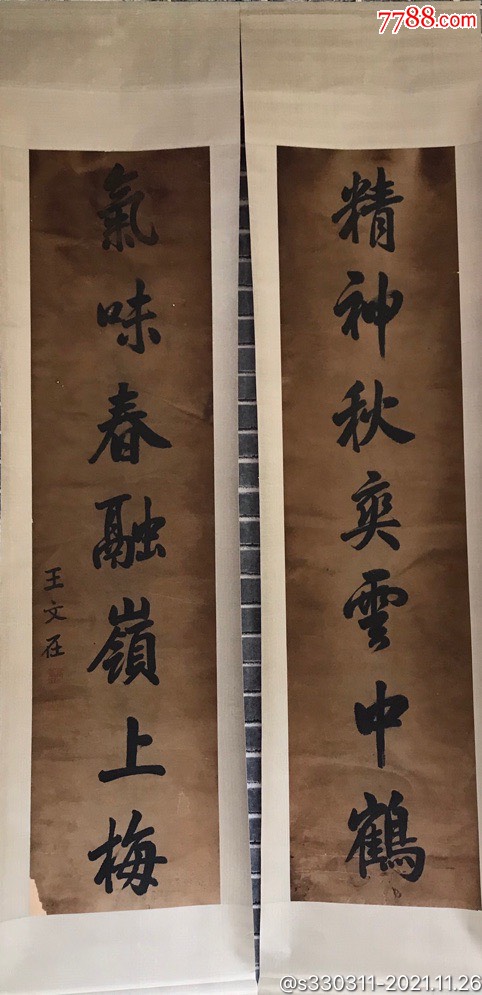 7788.com
精神秋奕雲中鶴
氣味春融嶺上梅
王文在
@s330311-2021.11.26